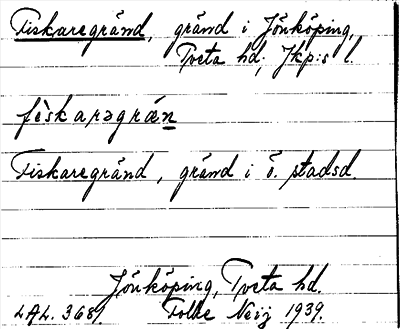 Fiskaregränd, gränd i Jönköping,
Tveta hd, Jkp:s l.
fèskarəgrǽn
Fiskaregränd, gränd i ö. stadsd.
Jönköping, Tveta hd.
LAL. 3689. Folke Neij 1939.